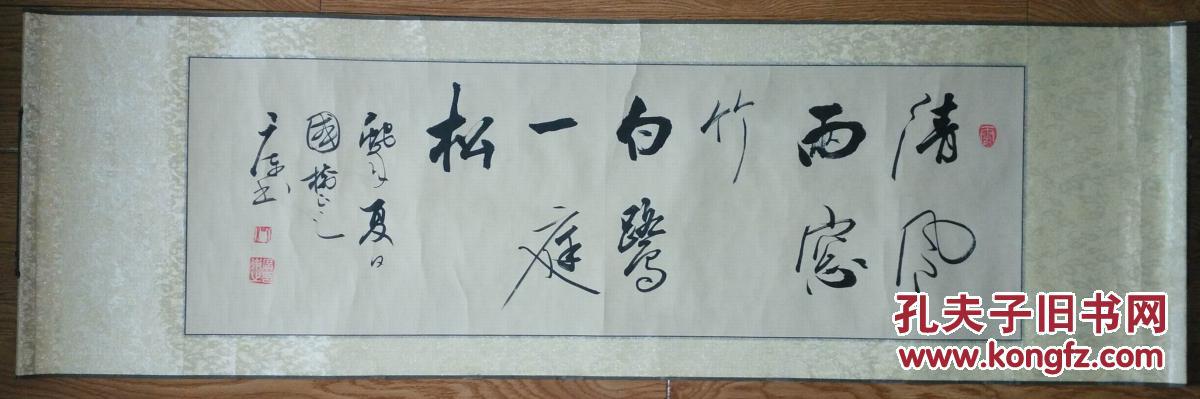 清風
兩窻
竹
白鷺
一庭
松
夏日
國
孔夫子旧书网
www.kongfz.com